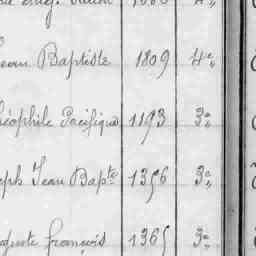 Jean Baptiste 1809 4e
Théophile Pacifique 1193 3e
eph Jean Bapte 1356 3e
guste françois 1365 3e